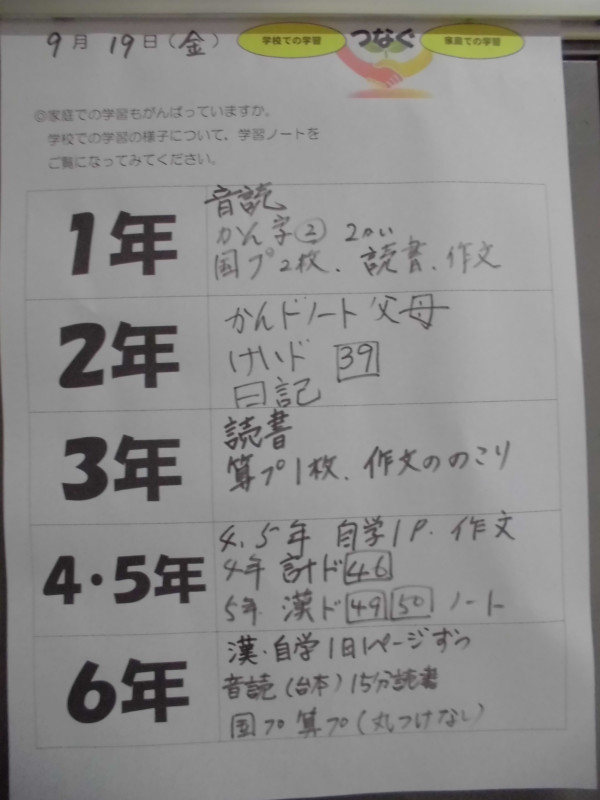 9月19日(金)
学校での学習 つなぐ 家庭での学習
◎家庭での学習もがんばっていますか。
学校での学習の様子について、学習ノートを
ご覧になってみてください。
1年
音読
かん字② 2かい
国プ2枚、読書、作文
2年
かんドノート 父母
けいド 39
日記
3年
読書
算プ1枚、作文ののこり
4・5年
4、5年 自学1P. 作文
4年 計ド46
5年 漢ド49 50 ノート
6年
漢・自学1日1ページずつ
音読(台本)15分読書
国プ 算プ(丸つけなし)